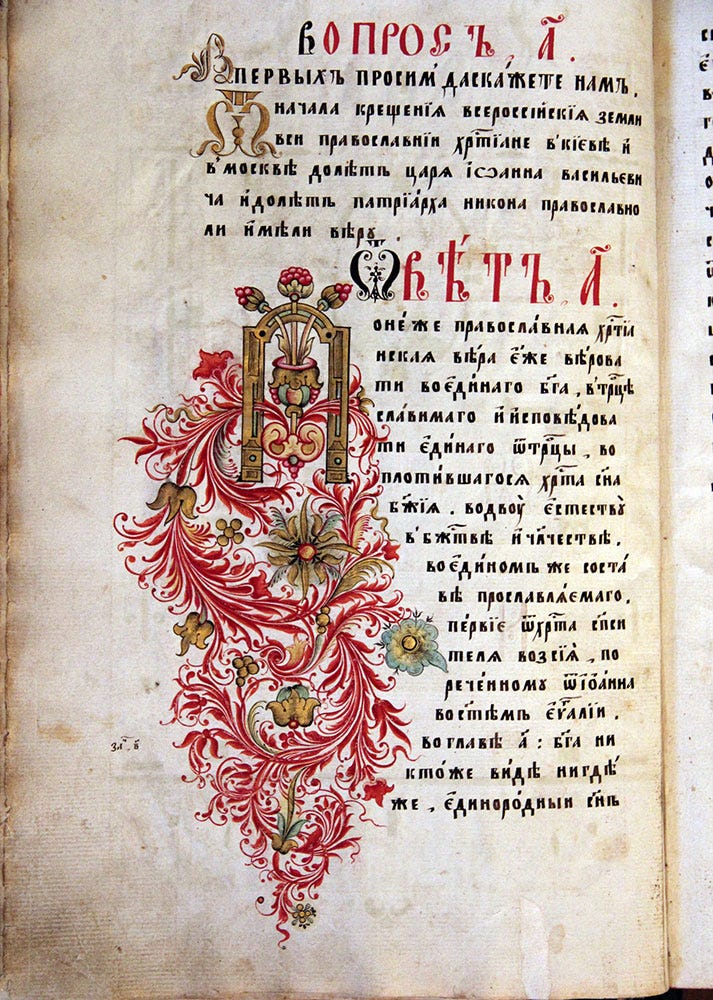 Вопросъ, а҃.
Впервыхъ просим̾ даска́жете намъ,
ѿ начала крещенїѧ всероссі́йскїѧ земли
вси православнїи хрⷭ҇тїѧне в̾кї́евѣ и҆
в̾москвѣ долѣтъ царѧ іѡанна васильеви
ча и҆долѣтъ патрїа́рха никона православно
ли и҆мѣли вѣрꙋ.
Ѿвѣ́тъ, а҃.
Понеже правосла́внаѧ хрⷭ҇тїѧ
нскаѧ вѣра є҆́же вѣ́рова
ти во є҆ди́наго бг҃а, в̾трⷪ҇цѣ
сла́вимаго и҆ и҆сповѣ́дова
ти є҆ди́наго ѿтрⷪ҇цы, во
плоти́вшагосѧ хрⷭ҇та сн҃а
бж҃їѧ. водвоꙋ̀ є҆стествꙋ̀
в̾бжⷭ҇твѣ̀ и҆ чл҃чествѣ,
во є҆ди́номъ же соста́
вѣ прославлѧ́емаго,
пе́рвїе ѿхрⷭ҇та сп҃си
телѧ возсїѧ̀, по
рече́нному ѿїѡанна
востѣмъ є҆ѵⷢ҇алїи.
во главѣ а҃: бг҃а ни
кто́же ви́дѣ нигдѣ́
же, є҆диноро́дныи сн҃ъ
за҃ч. в҃